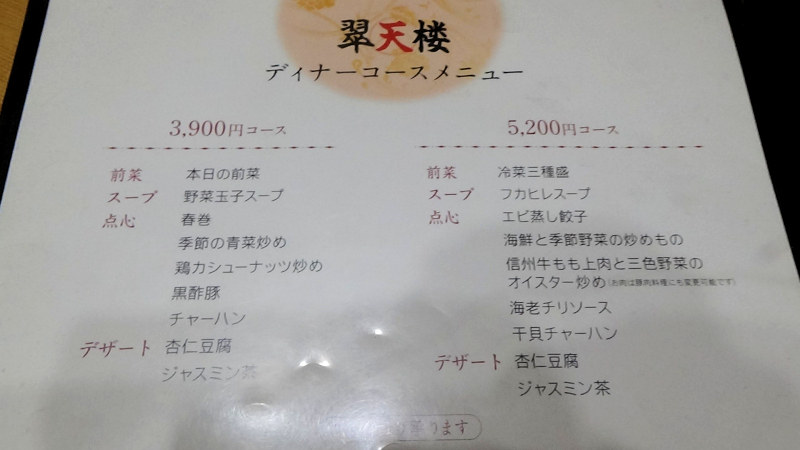 翠天楼
ディナーコースメニュー
3,900円コース
前菜 本日の前菜
スープ 野菜玉子スープ
点心 春巻
季節の青菜炒め
鶏カシューナッツ炒め
黒酢豚
チャーハン
デザート 杏仁豆腐
ジャスミン茶
5,200円コース
前菜 冷菜三種盛
スープ フカヒレスープ
点心 エビ蒸し餃子
海鮮と季節野菜の炒めもの
信州牛もも上肉と三色野菜の
オイスター炒め(お肉は豚肉料理にも変更可能です)
海老チリソース
干貝チャーハン
デザート 杏仁豆腐
ジャスミン茶
ります